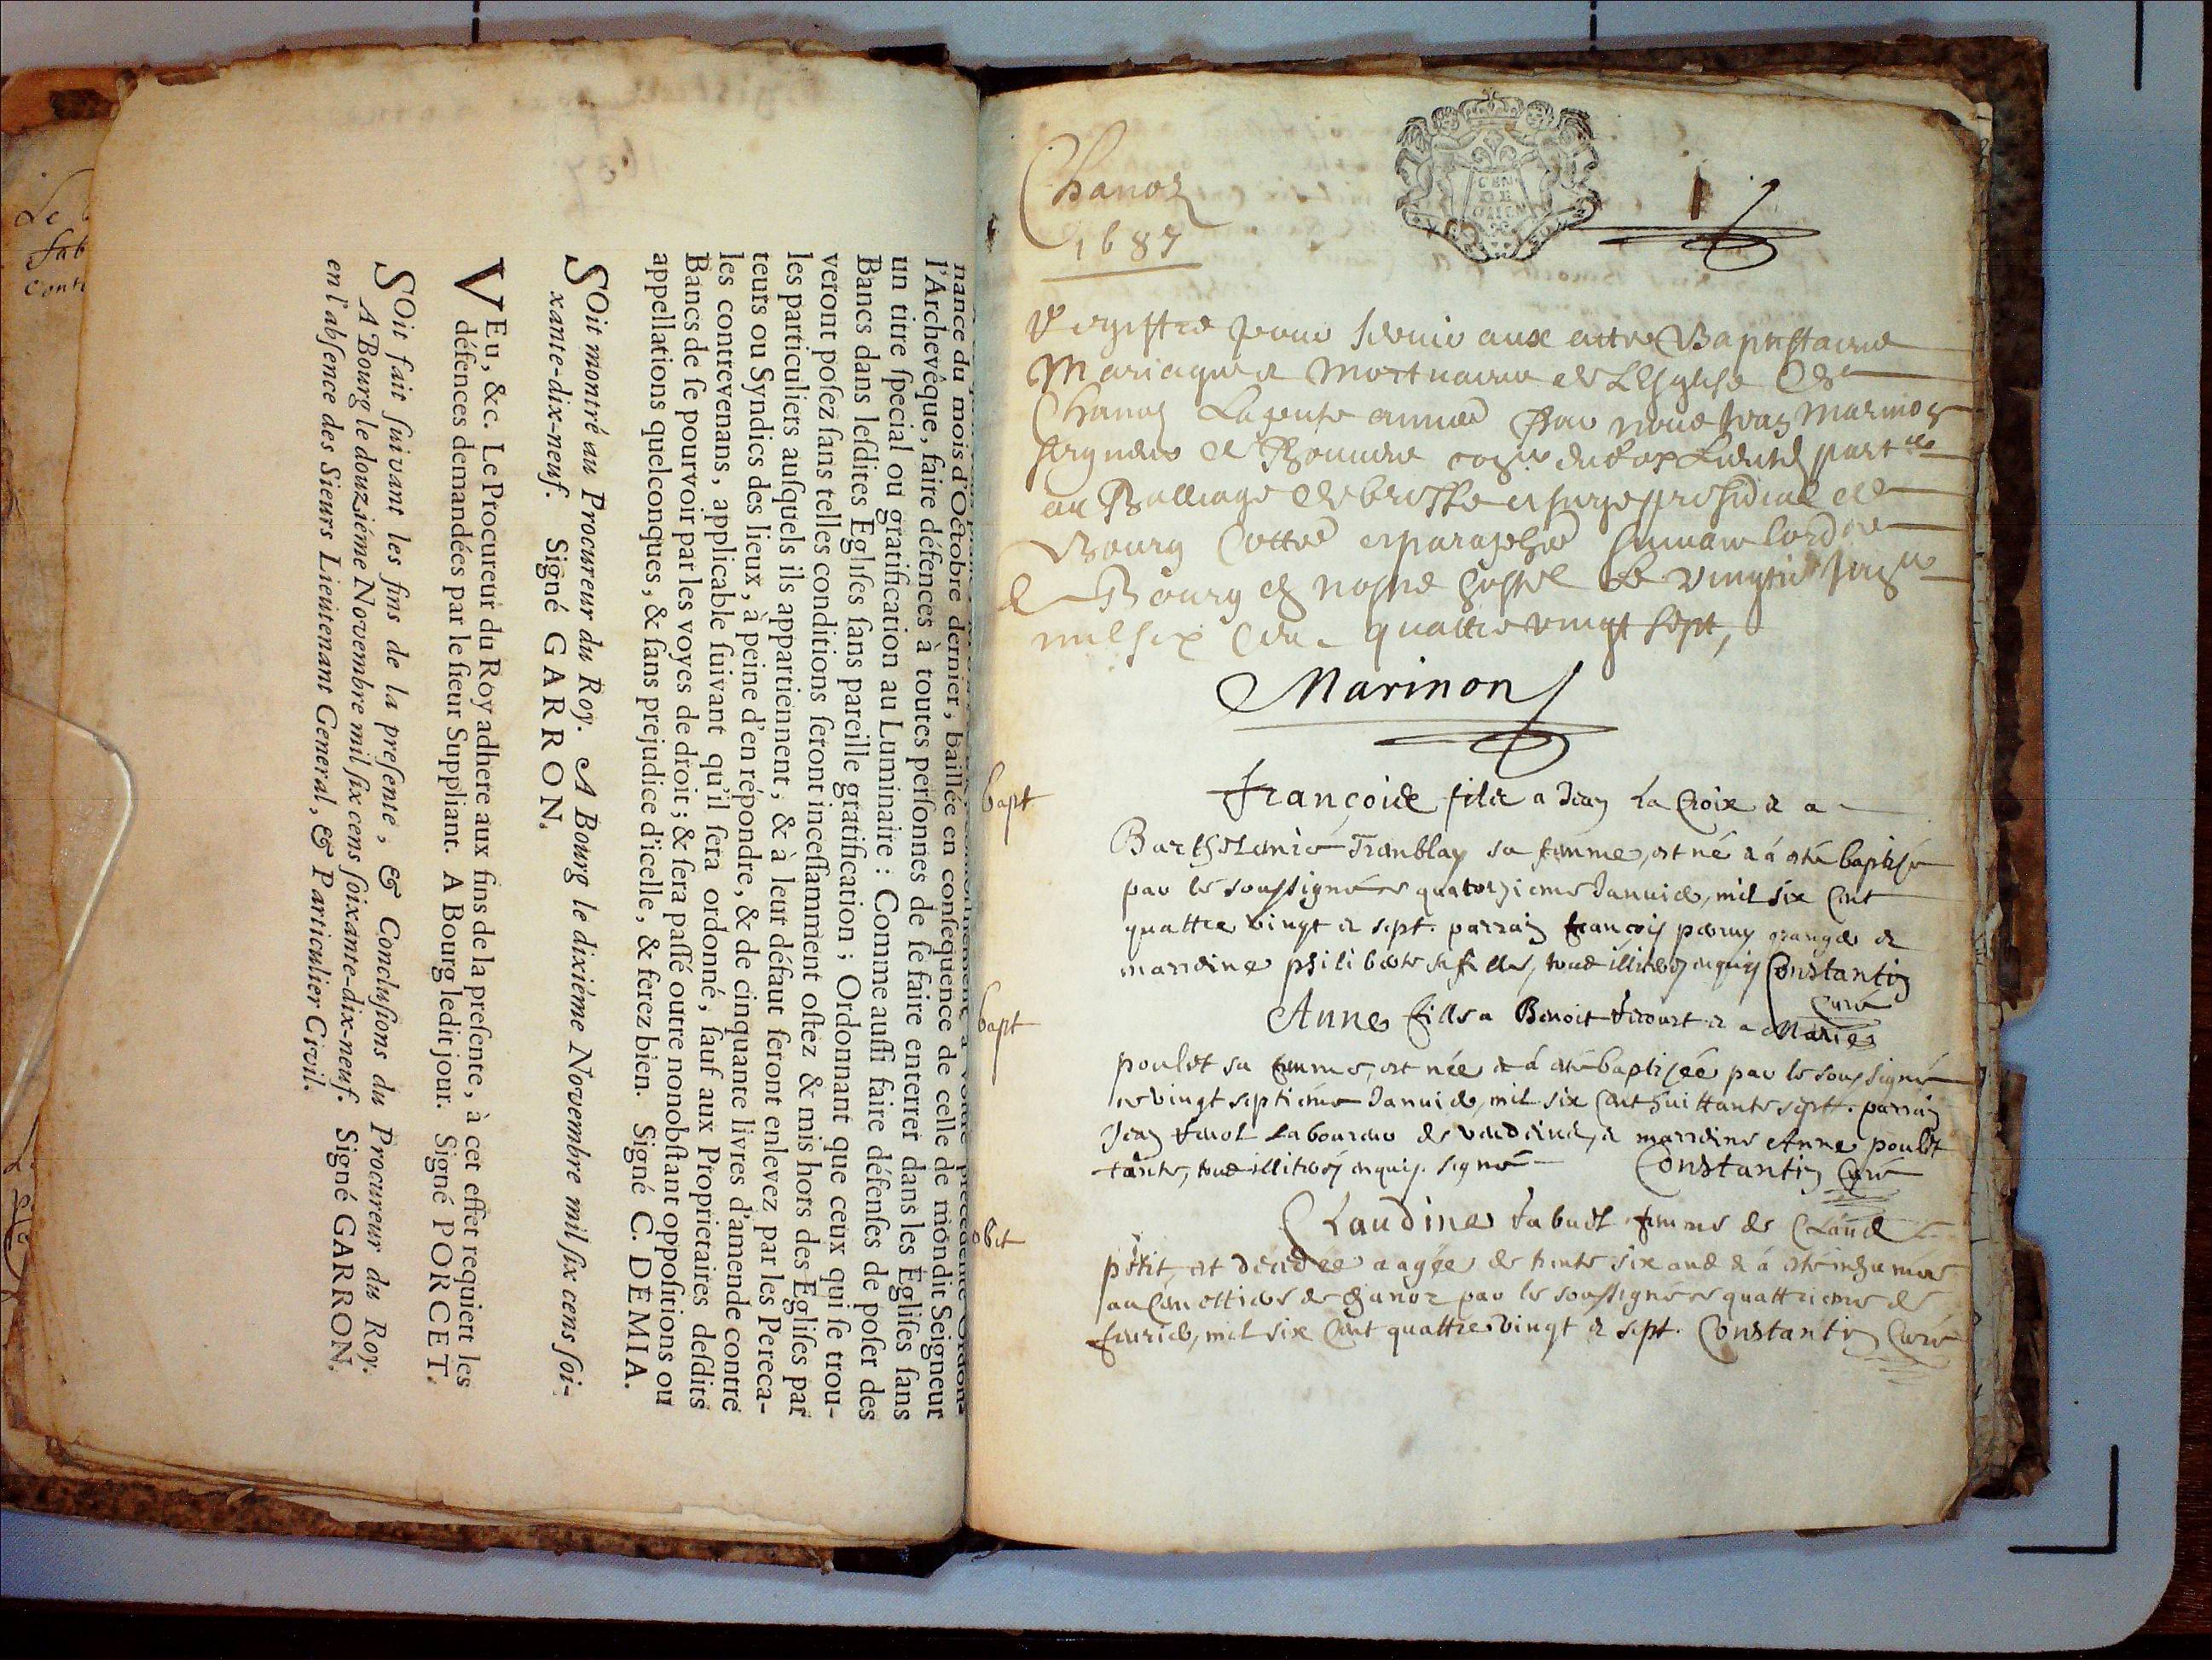 nance du mois d'Octobre dernier, baillée en conſequence de celle de mondit Seigneur
l'Archevêque, faire défences à toutes perſonnes de ſe faire enterrer dans les Egliſes ſans
un titre ſpecial ou gratification au Luminaire : Comme auſſi faire défenſes de poſer des
Bancs dans leſdites Egliſes ſans pareille gratification ; Ordonnant que ceux qui ſe trou-
veront poſez ſans telles conditions ſeront inceſſamment oſtez & mis hors des Egliſes par
les particuliers auſquels ils appartiennent, & à leur défaut ſeront enlevez par les Pereca-
teurs ou Syndics des lieux, à peine d'en répondre, & de cinquante livres d'amende contre
les contrevenans, applicable ſuivant qu'il ſera ordonné, ſauf aux Proprietaires deſdits
Bancs de ſe pourvoir par les voyes de droit ; & ſera paſſé outre nonobſtant oppoſitions ou
appellations quelconques, & ſans prejudice d'icelle, & ferez bien. Signé C. DEMIA.
SOit montré au Procureur du Roy. A Bourg le dixiéme Novembre mil ſix cens ſoi-
xante-dix-neuf. Signé GARRON.
VEu, &c. Le Procureur du Roy adhere aux fins de la preſente, à cet effet requiert les
défences demandées par le ſieur Suppliant. A Bourg ledit jour. Signé PORCET.
SOit fait ſuivant les fins de la preſente, & Concluſions du Procureur du Roy.
A Bourg le douziéme Novembre mil ſix cens ſoixante-dix-neuf. Signé GARRON.
en l'abſence des Sieurs Lieutenant General, & Particulier Civil.
Chanoz
1687
1
Registre pour servir aux actes Baptistaire
Mariage et Mortuaire de L'Esglise de
Chanoz par nous Jean Marinon
au Balliage de bresse et siege presidial de
Bourg Cotté et paraphé suivant lordre
Bourg en nostre hostel le vingtie
mil six cens quattre vingt sept,
Marinon
bapt
françois filz a Jean La Croix & a
Tramblay sa femme, est né & á esté baptisé
par le soussigné ce quatorzieme Januier, mil six Cent
quattre vingt & sept. parrain françois granger &
marreine philiberte sa fille, tous illiterez enquis Constantin
Curé
bapt
Anne fille a Benoit & a Marie
poulet sa femme, est née & á esté baptisée par le soussigné
ce vingt septieme Januier, mil six Cent huittante sept. parrain
Jean laboureur de & marreine Anne poulet
tante, tous illiterez enquis. signé Constantin Curé
obit
Claudine femme de Claude
petit, est decedée aagée de trente six ans & á esté inhumée
au Cemettiere de chanoz par le soussigné ce quattrieme de
feurier, mil six Cent quattre vingt & sept. Constantin Curé